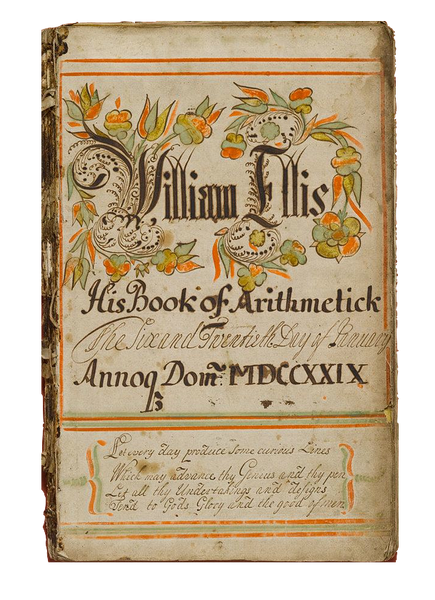 William Ellis
His Book of Arithmetick
The Six and Twentieth Day of January
Annoq Dom: MDCCXXIX
Let every day produce some curious Lines
Which may advance thy Genius and thy pen
Let all thy Undertakings and designs
Tend to Gods Glory and the good of men